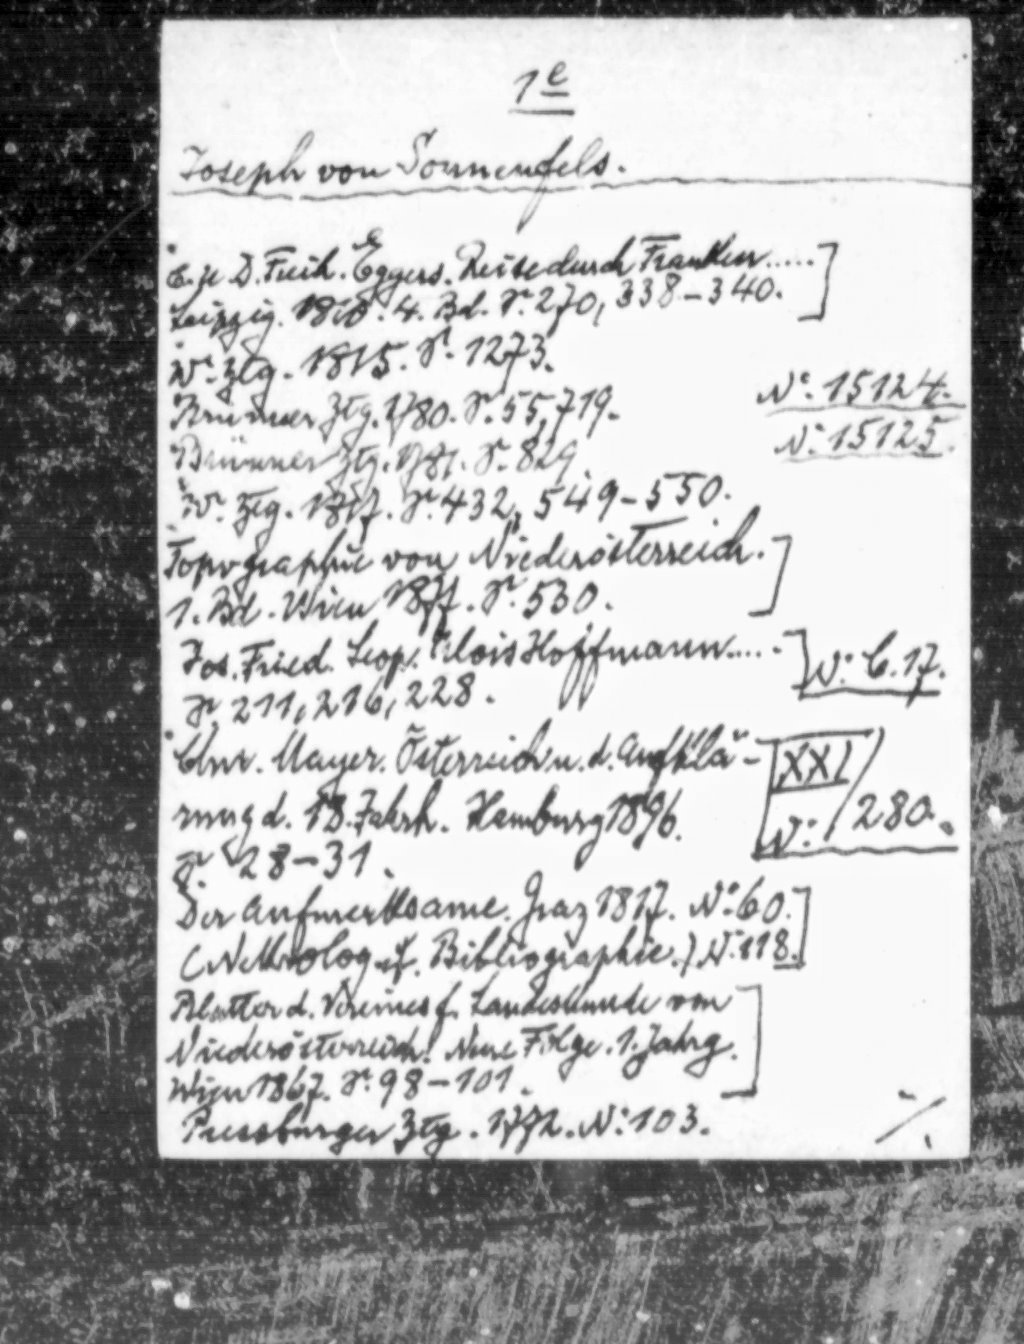 1e
Joseph von Sonnenfels.
C. U. D. Freih. Eggers. Reise durch Franken.....]
Leipzig. 1810. 4. Bd. S. 270, 338-340.
W. Ztg. 1815. S. 1273.
Brünner Ztg. 1780. S. 55, 719. No. 15124.
Brünner Ztg. 1781. S. 829. N: 15125.
W. Ztg. 1817. S. 432, 549-550.
Topographie von Niederösterreich.]
1. Bd. Wien 1877. S. 530.
Jos. Fried. Leop. Alois Hoffmann.....] N: C. 17.
S. 211, 216, 228.
Chr. Mayer. Österreich u. d. Aufklä- XXI
rung d. 18. Jahrh. Hamburg 1896. N: 280.
S. 28-31.
Der Aufmerksame. Graz 1817. No. 60.]
(Nekrolog u. Bibliographie.) N: 118.
Blätter d. Vereines f. Landeskunde von]
Niederösterreich. Neue Folge. 1. Jahrg.
Wien 1867. S. 98-101.
Pressburger Ztg. 1772. N: 103. ./.